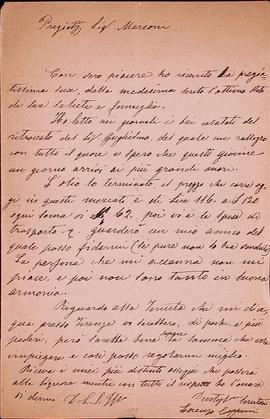 Pregiatᵒ Sigʳ Marconi
Con vero piacere ho ricevuto la pregia-
tissima sua, dalla medesima sento l'ottimo stato
di sua salute e famiglia.
Ho letto nei giornali e bei resultati del
ritrovato del Sigʳ Guglielmo, del quale mi rallegro
con tutto il quore e spero che questo giovine
un giorno arrivi ai più grande onore.
L'olio lo terminato, il prezzo che corre og-
gi in questi mercati è di Lire 116. a £ 120
ogni soma di 62, poi vi è le spese di
trasporto guarderò un mio amico del
quale posso fidarmi (se pure non lo ha venduto)
La persona che mi accenna non mi
piace, e poi non sono tanto in buona
armonia.
Riguardo alla Tenuta che mi di-
ce, presso Firenze vi sarebbero, di poste, e più
poderi, però sarebbe bene sapere la somma che vole
impiegare e così posso regolarmi meglio.
Riceva i miei più distinti ossequi che porterà
alla Signora mentre con tutto il rispetto ho l'onore
di dirmi D. S. S.
Lorenzo